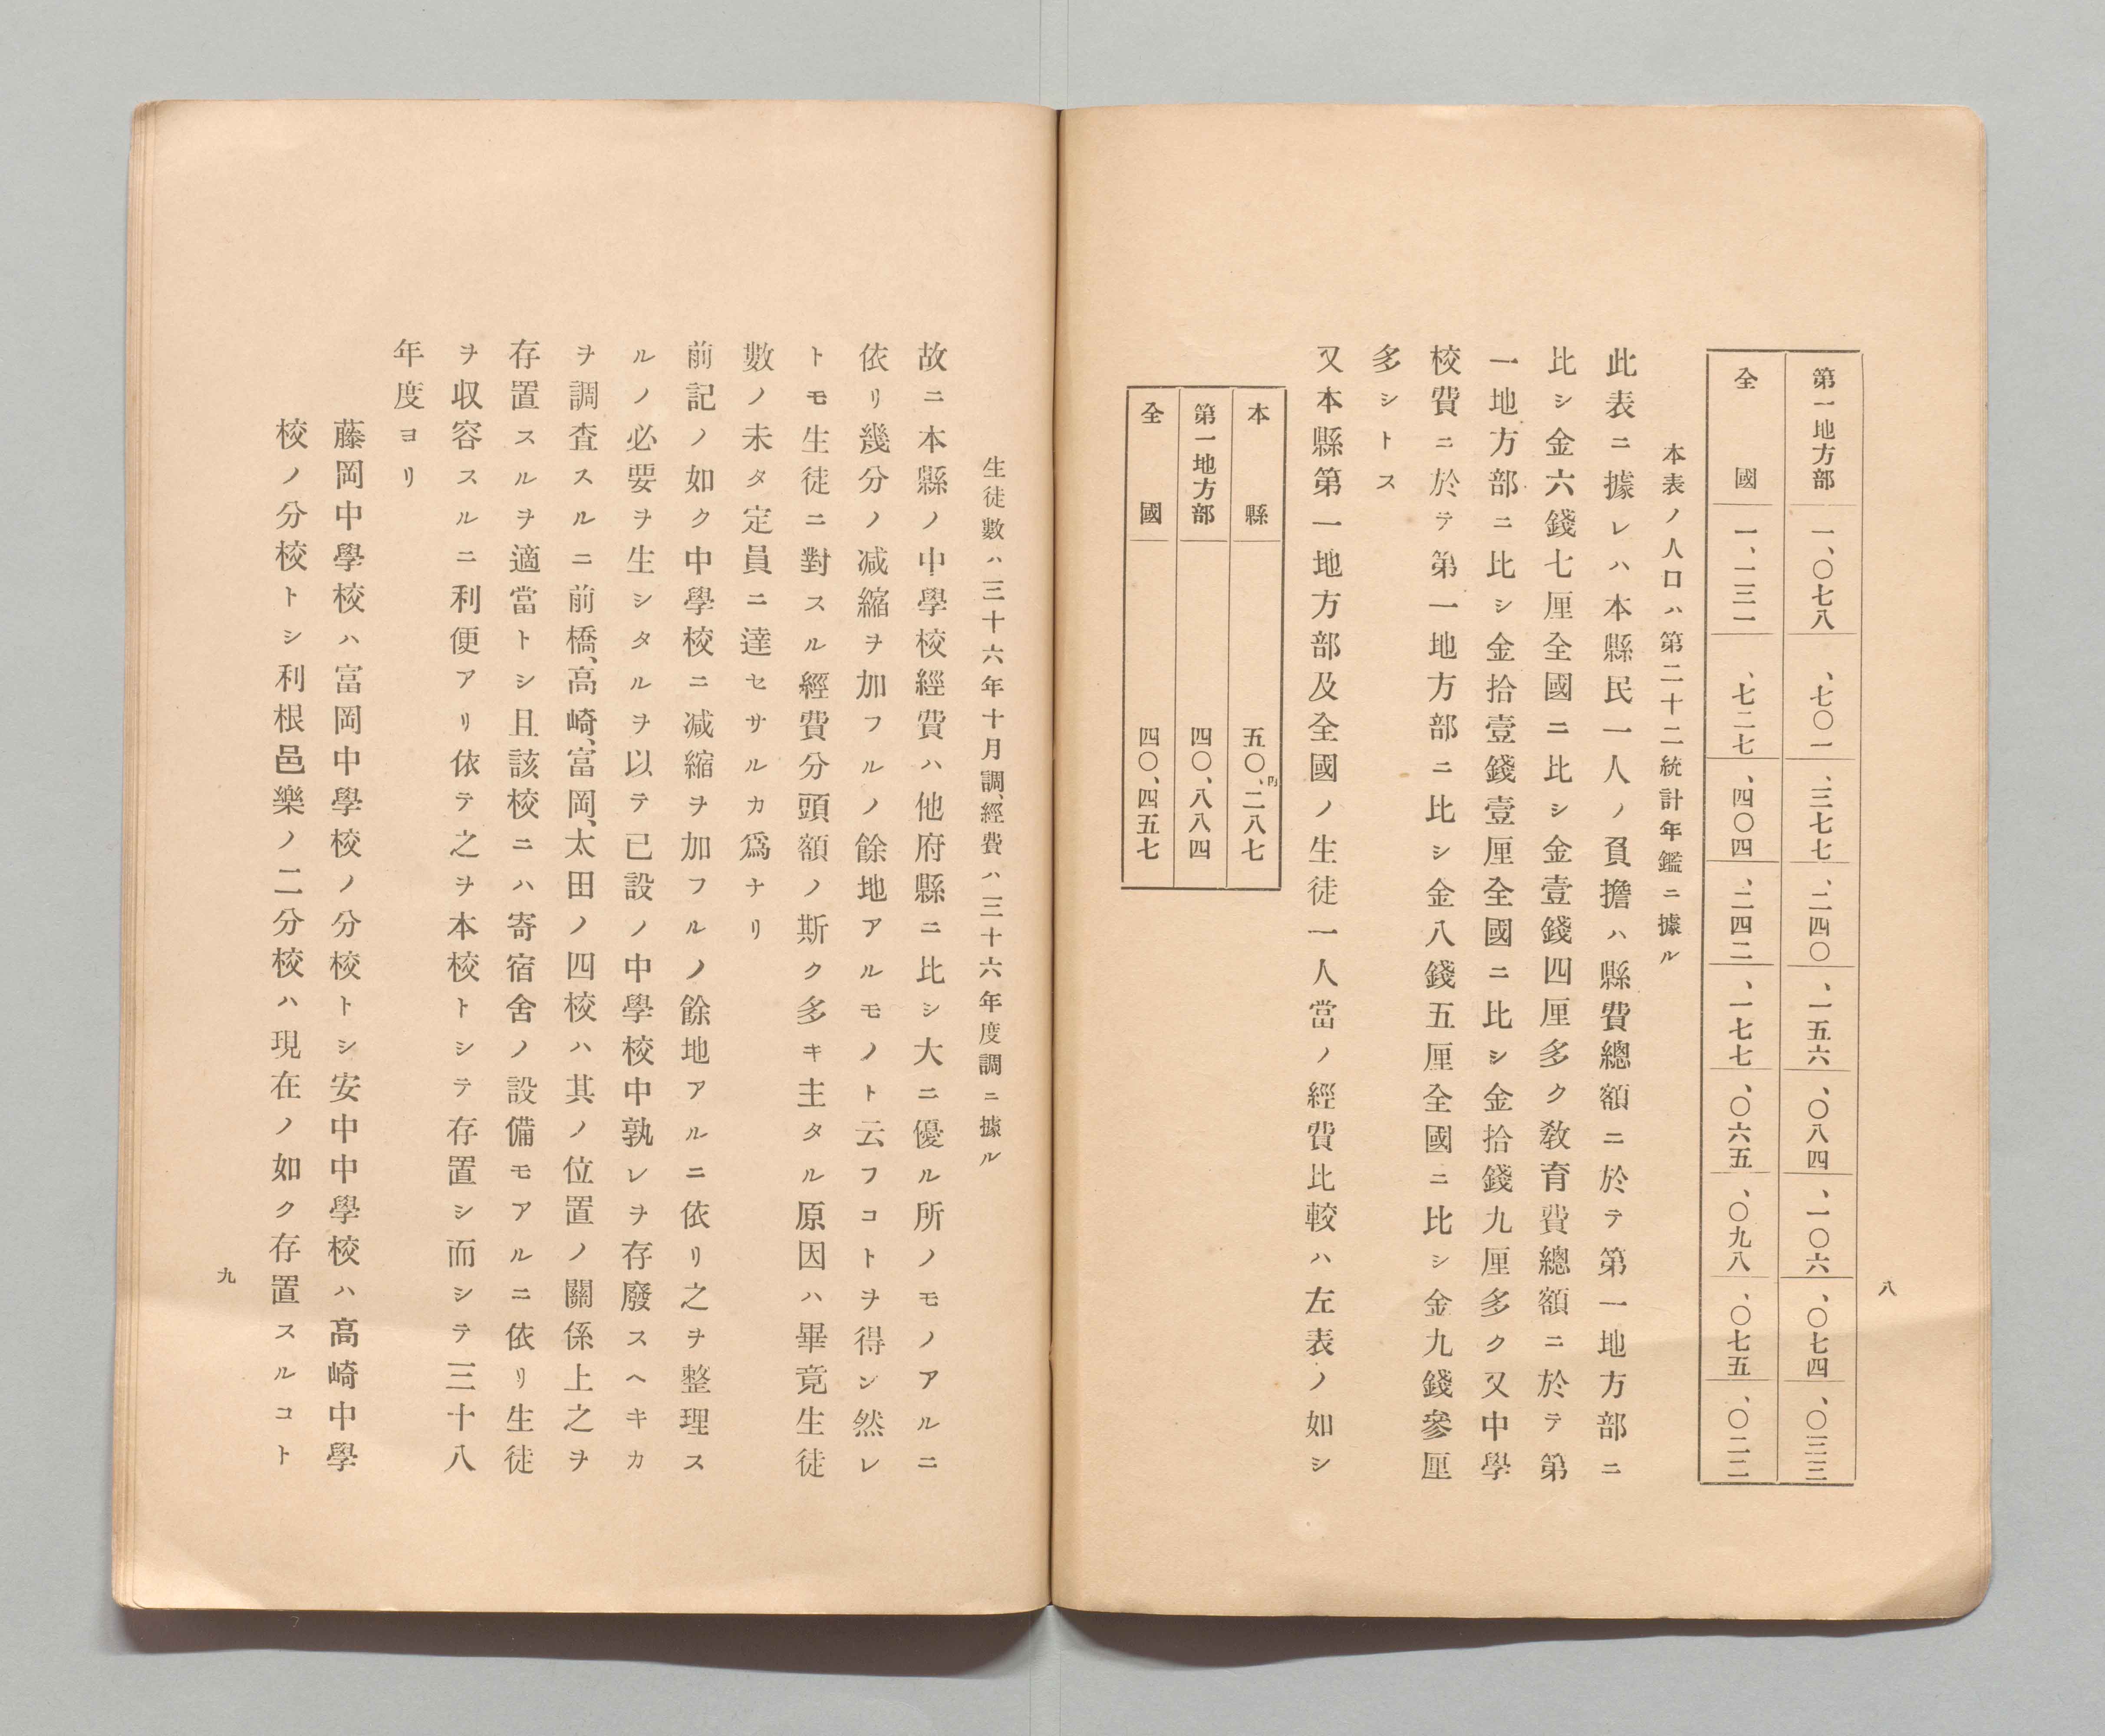 八
第一地方部 一、〇七八 、七〇一 、三七七 、二四〇 、一五六 、〇八四 、一〇六 、〇七四 、〇三三
全國 一、一三一 、七二七 、四〇四 、二四二 、一七七 、〇六五 、〇九八 、〇七五 、〇二二
本表ノ人口ハ第二十二統計年鑑ニ據ル
此表ニ據レハ本縣民一人ノ負擔ハ縣費總額ニ於テ第一地方部ニ
比シ金六錢七厘全國ニ比シ金壹錢四厘多ク敎育費總額ニ於テ第
一地方部ニ比シ金拾壹錢壹厘全國ニ比シ金拾錢九厘多ク又中學
校費ニ於テ第一地方部ニ比シ金八錢五厘全國ニ比シ金九錢參厘
多シトス
又本縣第一地方部及全國ノ生徒一人當ノ經費比較ハ左表ノ如シ
本縣 五〇、二八七
円
第一地方部 四〇、八八四
全國 四〇、四五七
生徒數ハ三十六年十月調、經費ハ三十六年度調ニ據ル
故ニ本縣ノ中學校經費ハ他府縣ニ比シ大ニ優ル所ノモノアルニ
依リ幾分ノ減縮ヲ加フルノ餘地アルモノト云フコトヲ得ン然レ
トモ生徒ニ對スル經費分頭額ノ斯ク多キ主タル原因ハ畢竟生徒
數ノ未タ定員ニ達セサルカ爲ナリ
前記ノ如ク中學校ニ減縮ヲ加フルノ餘地アルニ依リ之ヲ整理ス
ルノ必要ヲ生シタルヲ以テ已設ノ中學校中孰レヲ存廢スヘキカ
ヲ調査スルニ前橋、高崎、富岡、太田ノ四校ハ其ノ位置ノ關係上之ヲ
存置スルヲ適當トシ且該校ニハ寄宿舍ノ設備モアルニ依リ生徒
ヲ收容スルニ利便アリ依テ之ヲ本校トシテ存置シ而シテ三十八
年度ヨリ
藤岡中學校ハ富岡中學校ノ分校トシ安中中學校ハ高崎中學
校ノ分校トシ利根邑樂ノ二分校ハ現在ノ如ク存置スルコト
九